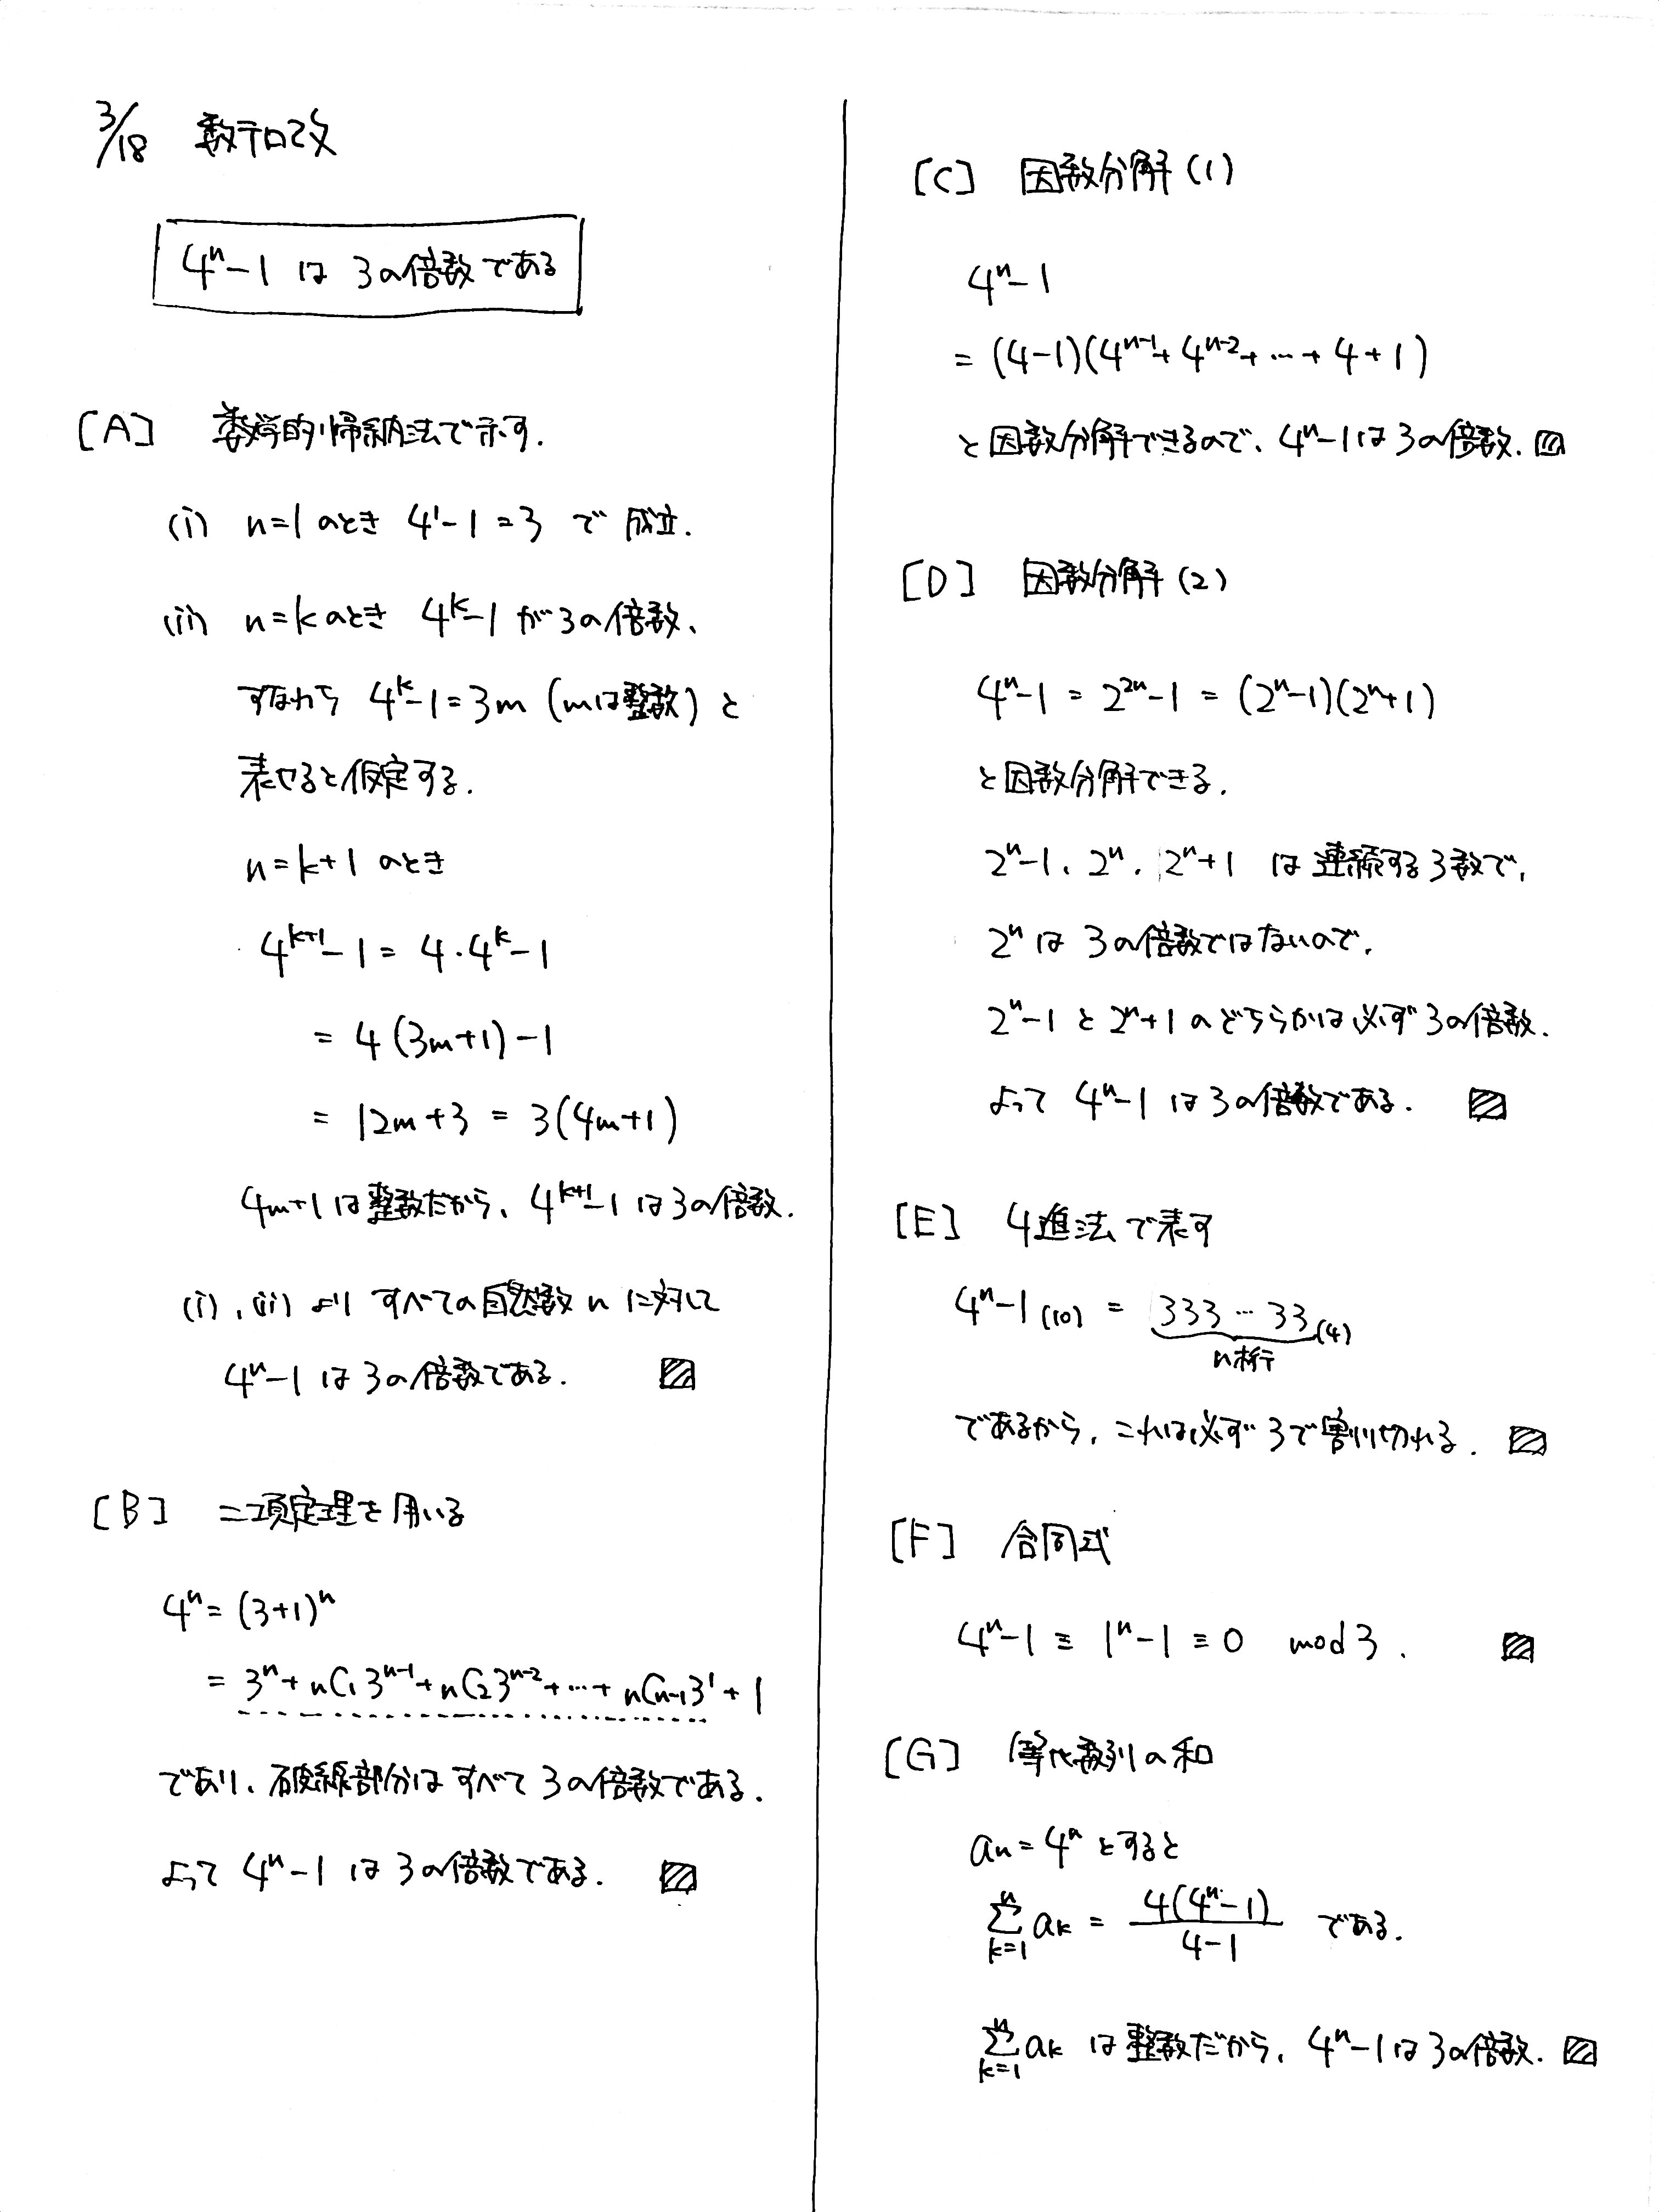 3/18 数テロ改
4^n-1 は 3の倍数である
[A] 数学的帰納法で示す.
(i) n=1のとき 4^1-1=3 で 成立.
(ii) n=kのとき 4^k-1 が3の倍数、
すなわち 4^k-1=3m (mは整数) と
表せると仮定する.
n=k+1 のとき
4^{k+1}-1 = 4・4^k-1
= 4(3m+1)-1
= 12m+3 = 3(4m+1)
4m+1は整数だから、4^{k+1}-1は3の倍数.
(i), (ii) より すべての自然数 n に対して
4^n-1 は 3の倍数である.
[B] 二項定理を用いる
4^n = (3+1)^n
= 3^n + nC1 3^{n-1} + nC2 3^{n-2} + … + nCn-1 3^1 + 1
であり、破線部分は すべて 3の倍数である.
よって 4^n-1 は 3の倍数である.
[C] 因数分解(1)
4^n-1
= (4-1)(4^{n-1}+4^{n-2}+…+4+1)
と因数分解できるので、4^n-1は3の倍数.
[D] 因数分解(2)
4^n-1 = 2^{2n}-1 = (2^n-1)(2^n+1)
と因数分解できる.
2^n-1、2^n、2^n+1 は 連続する3数で、
2^n は 3の倍数ではないので、
2^n-1 と 2^n+1 のどちらかは必ず3の倍数.
よって 4^n-1 は 3の倍数である.
[E] 4進法で表す
4^n-1(10) = 333…33(4)
n桁
であるから、これは必ず3で割り切れる.
[F] 合同式
4^n-1 ≡ 1^n-1 ≡ 0 mod 3.
[G] 等比数列の和
an = 4^n とすると
∑_{k=1}^n ak = 4(4^n-1)/4-1 である.
∑_{k=1}^n ak は 整数だから、4^n-1は3の倍数.